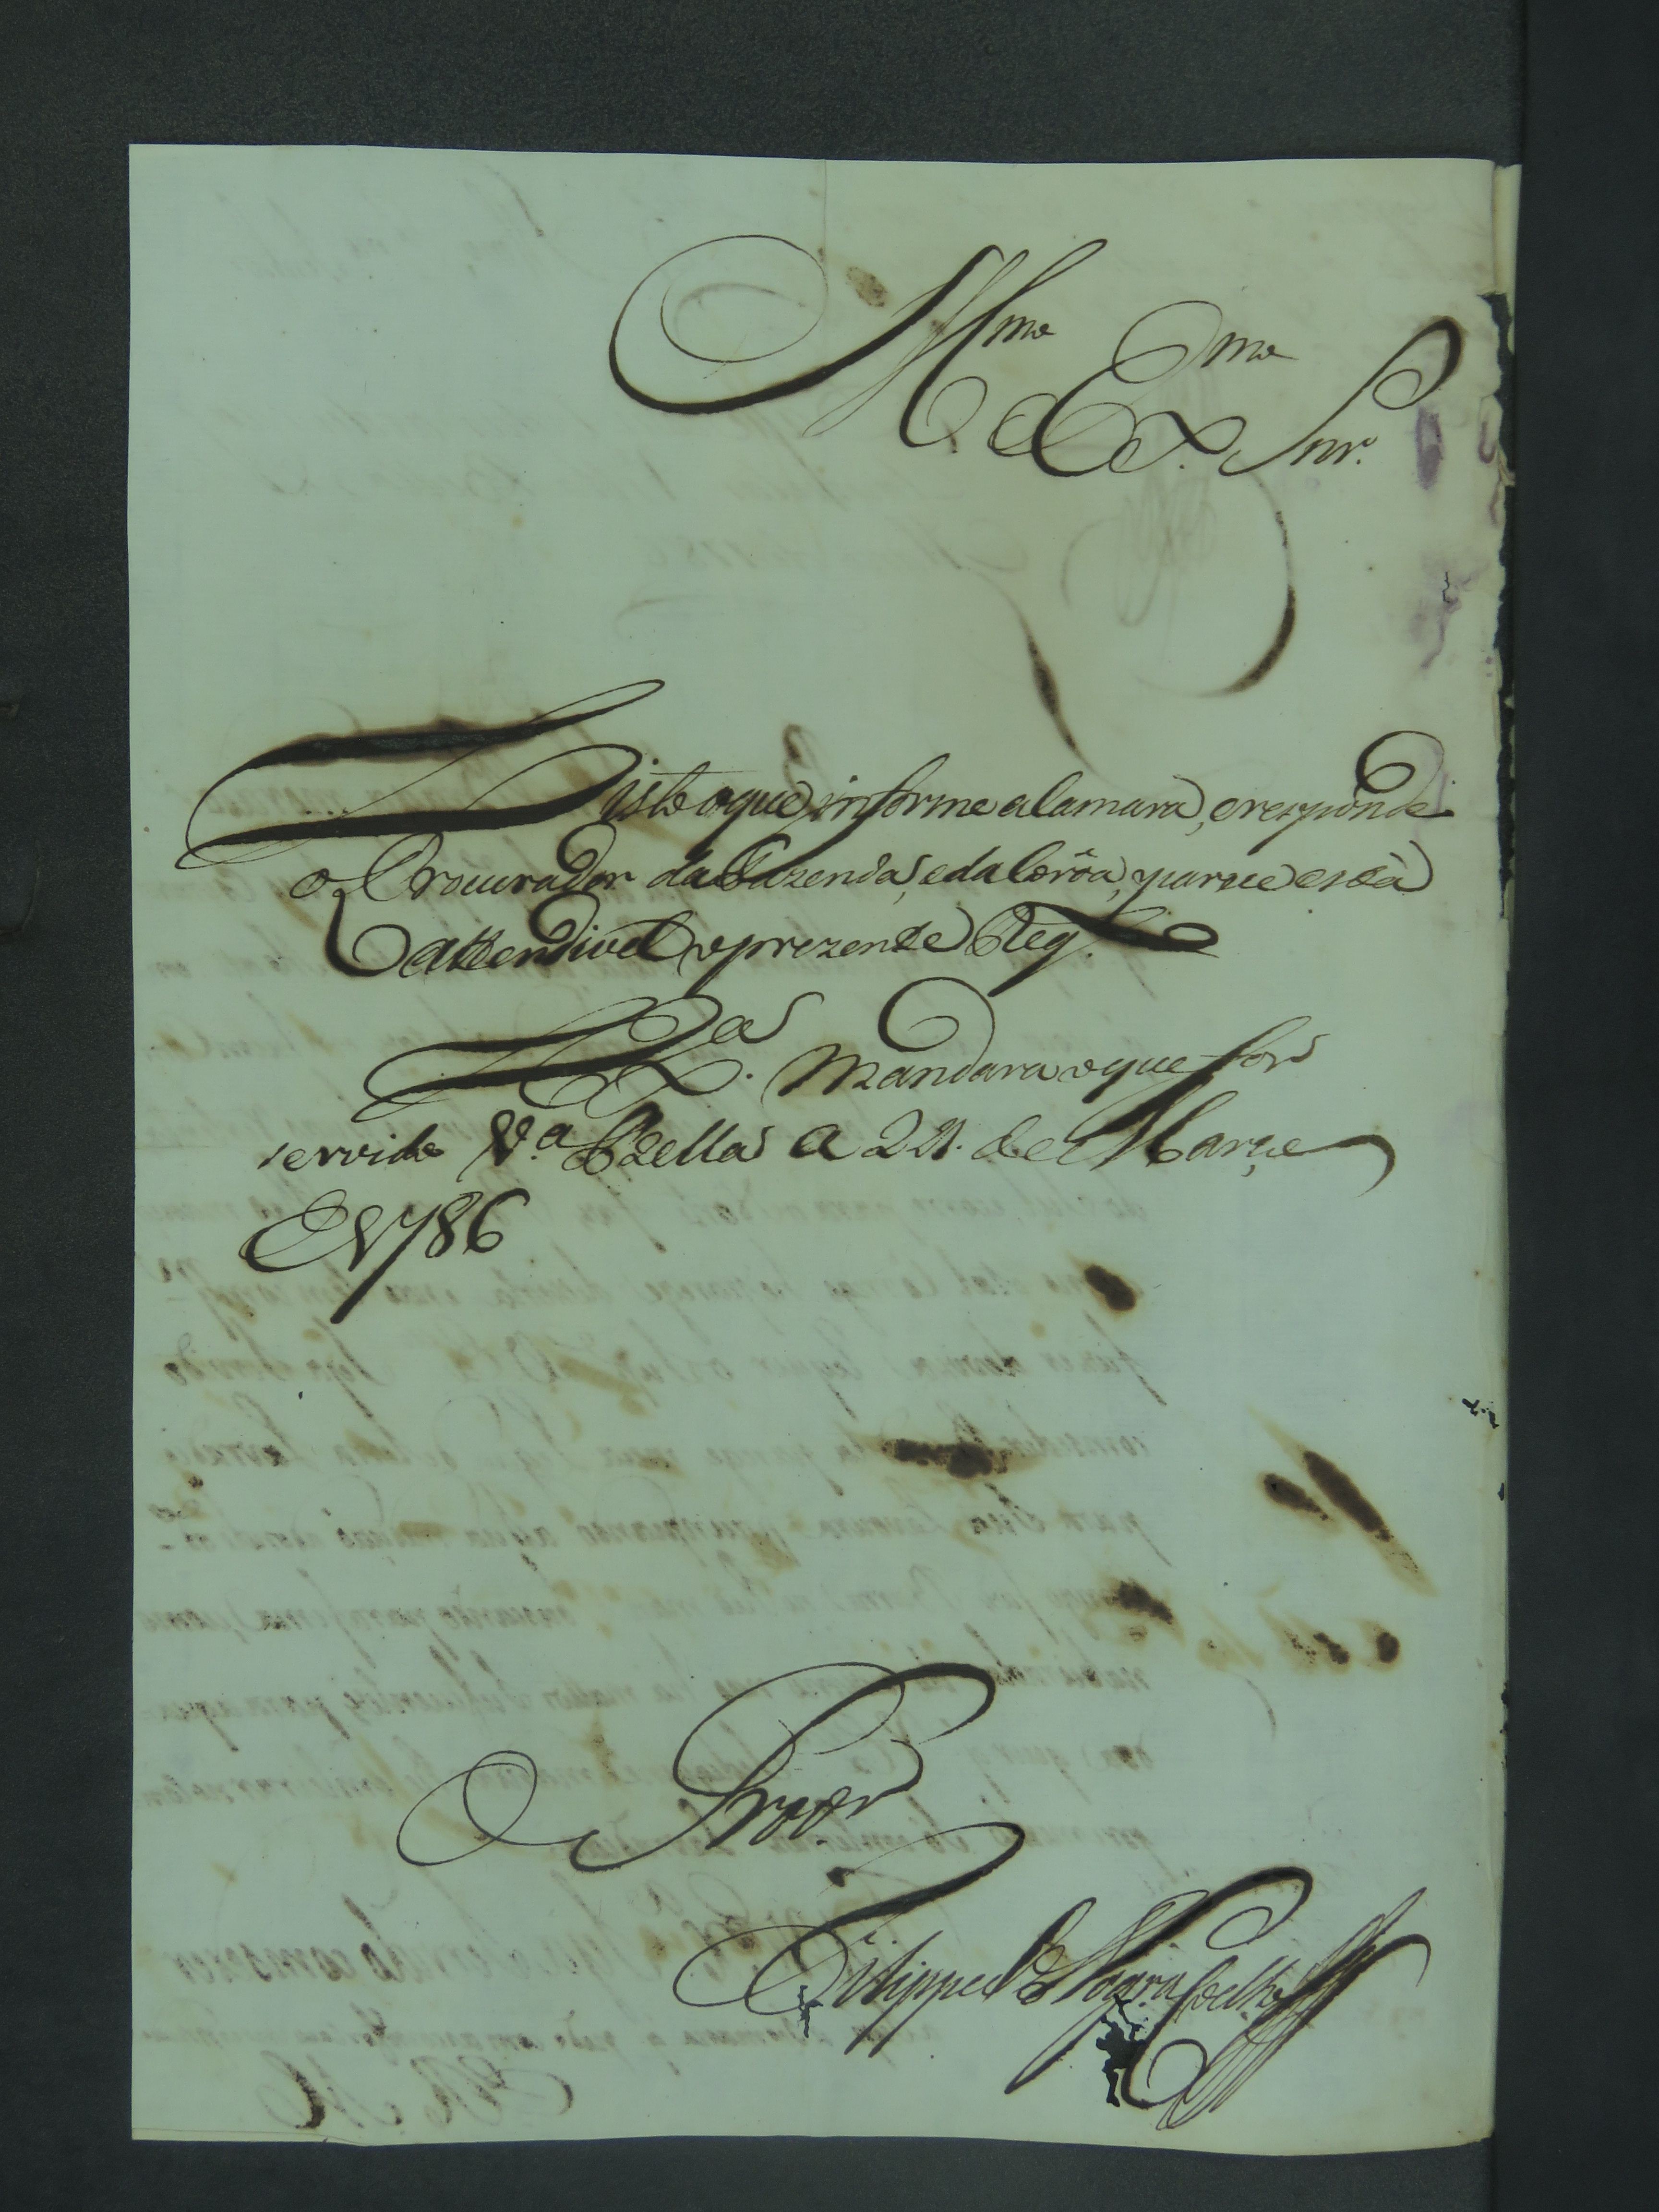 Illmo e Exmo Snr.
Visto o que informe a Camara, e responde
o Procurador da Fazenda, e da Corôa, parece está
attendivel o prezente Reqto
V Exa. Mandara o que for
servido Va. Bella a 21. de Março
de 1786
O Provor.
Filippe Joze Nogra Coelho